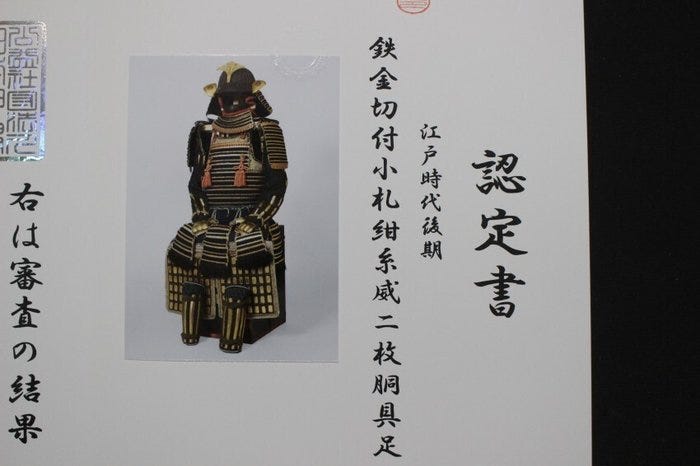 認定書
江戸時代後期
鉄金切付小札紺糸威二枚胴具足
右は審査の結果